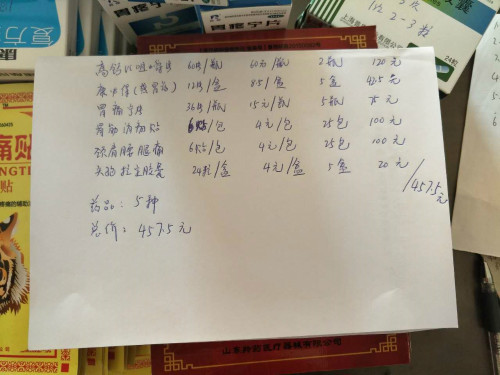 胃痛宁片
复方
1次 2-3粒
24粒
60片/瓶 60元/瓶 2瓶 120元
12袋/盒 8.5/盒 5盒 42.5元
胃痛宁片 36片/瓶 15元/瓶 5瓶 75元
6贴/包 4元/包 25包 100元
颈肩腰腿痛 6贴/包 4元/包 25包 100元
头孢拉定胶囊 24粒/盒 4元/盒 5盒 20元
/457.5元
药品：5种
总价：457.5元
痛贴
贴
疼痛的辅助
医疗器械有限公司